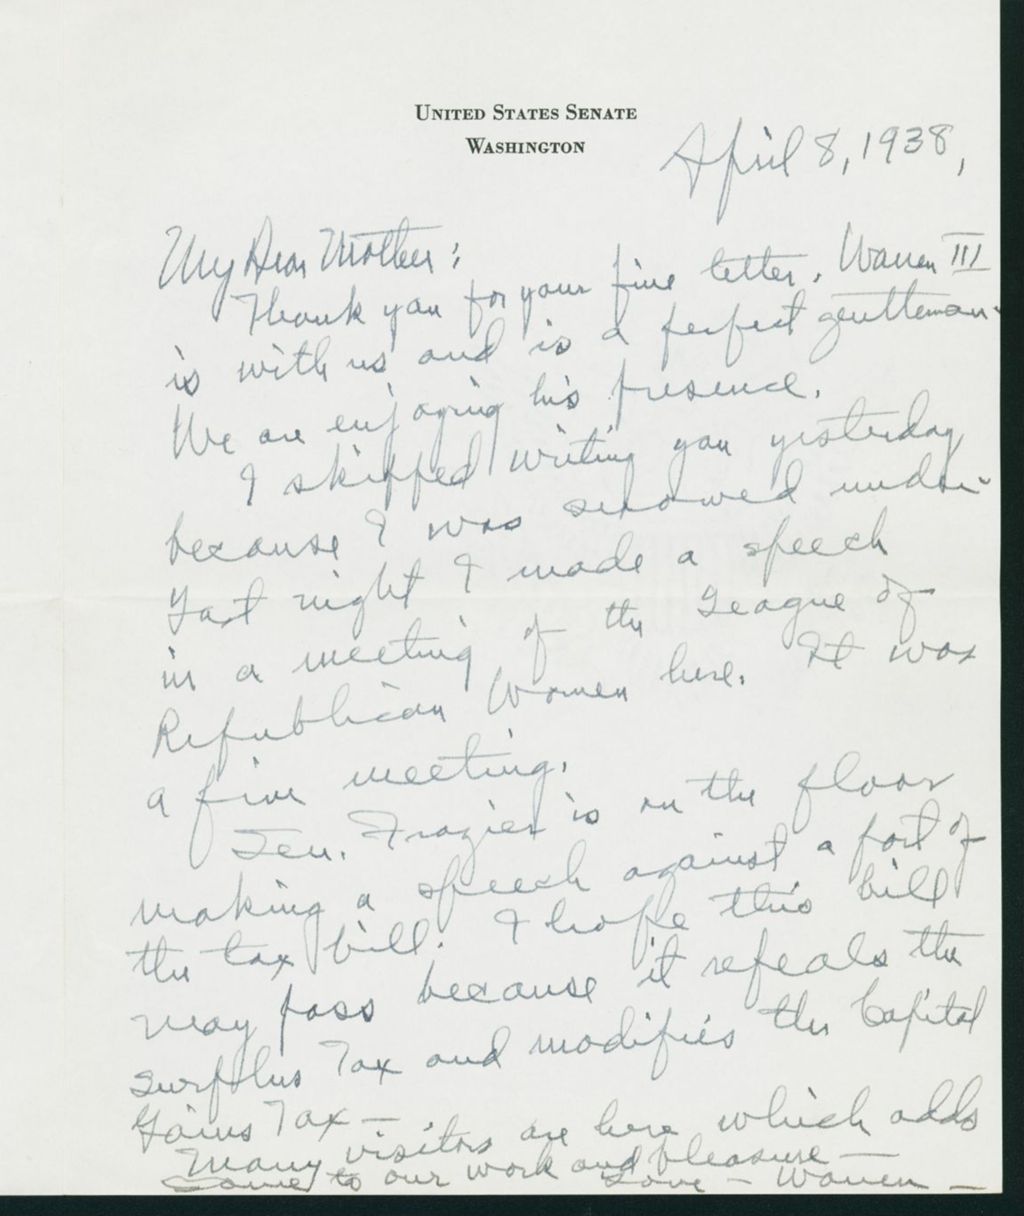 UNITED STATES SENATE
WASHINGTON
April 8, 1938,
My Dear Mother:
Thank you for your fine letter. Warren III
is with us and is a perfect gentleman.
We are enjoying his presence.
I skipped writing you yesterday
because I was snowed under.
Last night I made a speech
in a meeting of the League of
Republican Women here. It was
a fine meeting.
Sen. Frazier is on the floor
making a speech against a part of
the tax bill. I hope this bill
may pass because it repeals the
Surplus Tax and modifies the Capital
Gains Tax —
Many visitors are here which adds
some to our work and pleasure —
Love — Warren —